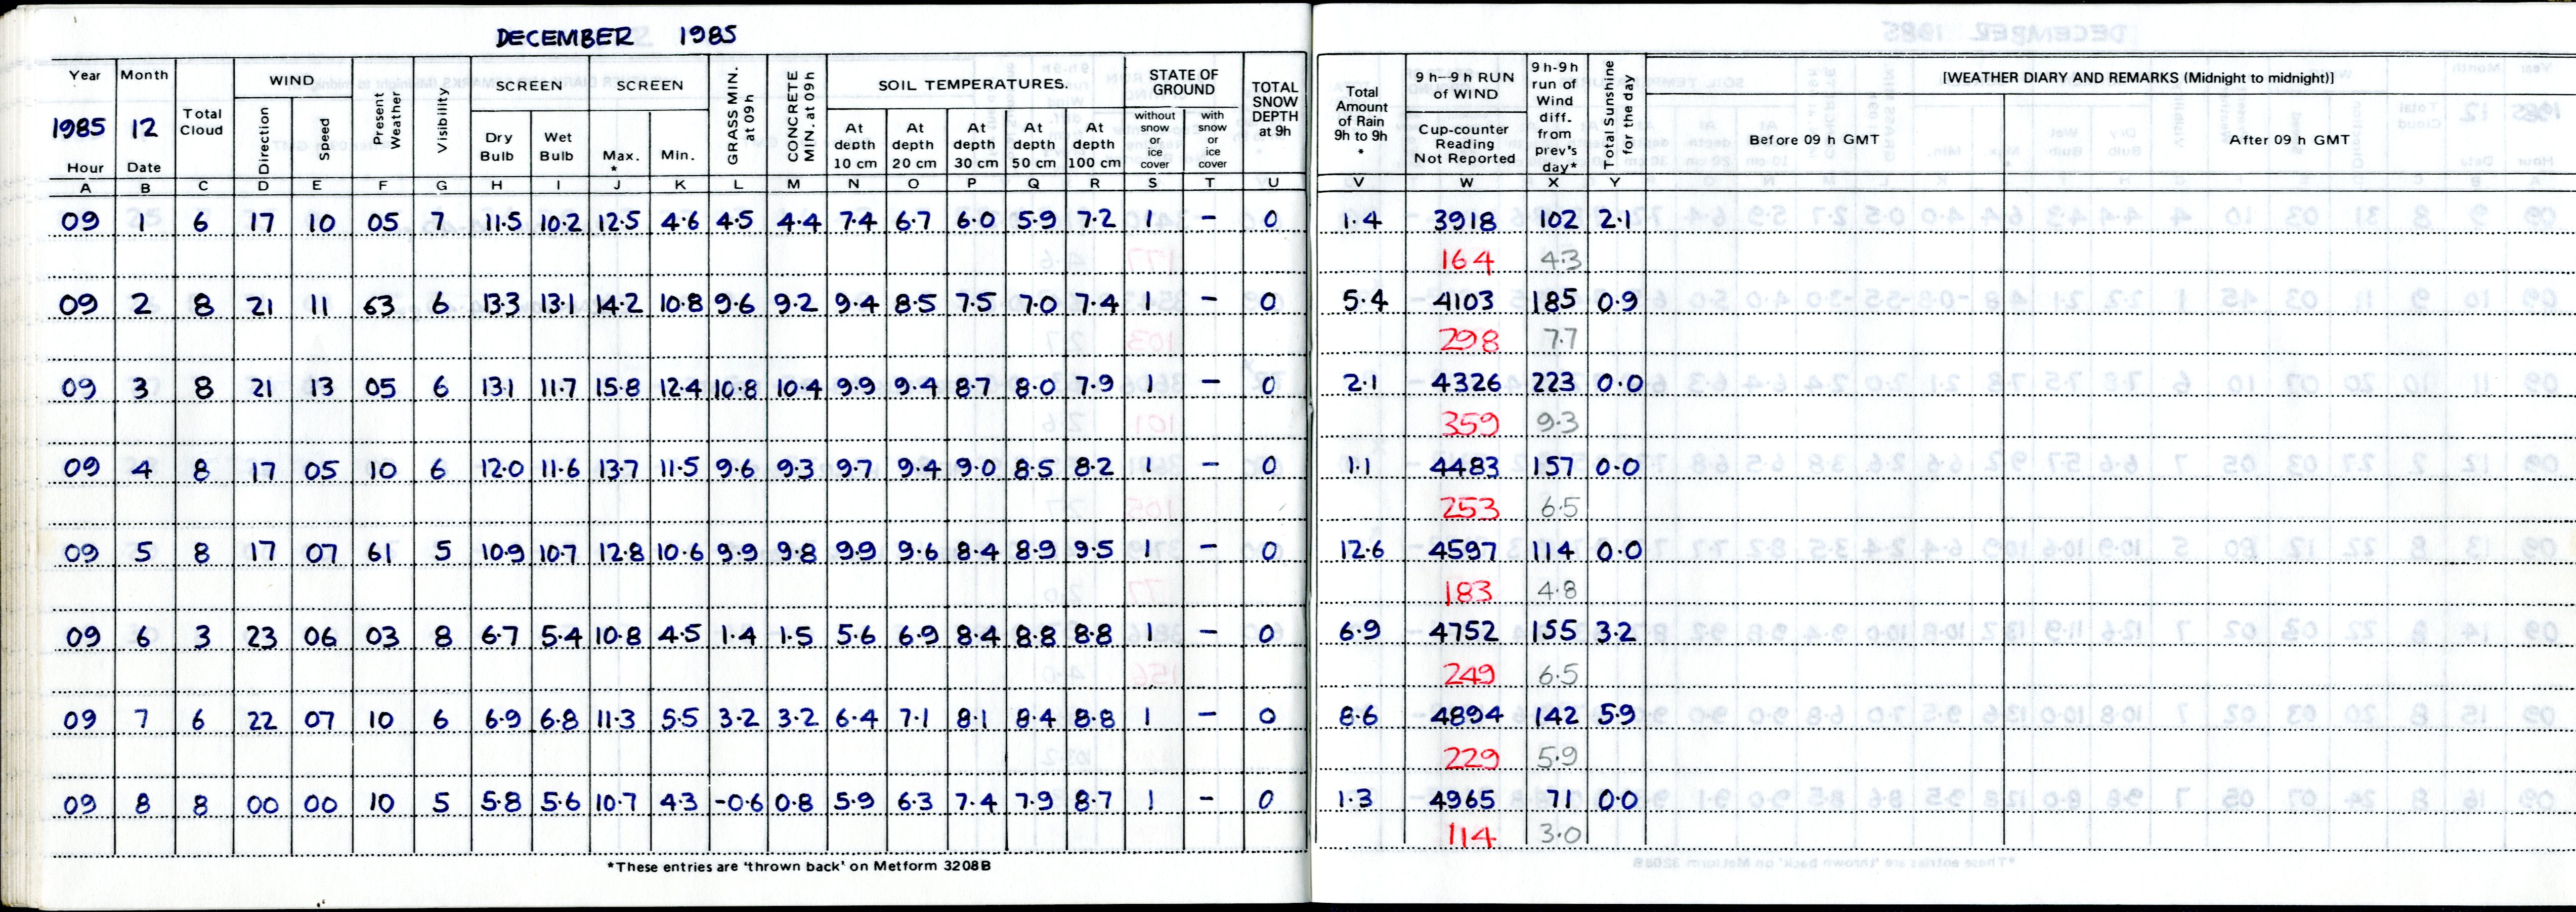 DECEMBER 1985
Year Month Total Cloud WIND Direction Speed Present Weather Visibility SCREEN Dry Bulb Wet Bulb SCREEN Max. * Min. GRASS MIN. at 09h CONCRETE MIN. at 09h SOIL TEMPERATURES. At depth 10 cm At depth 20 cm At depth 30 cm At depth 50 cm At depth 100 cm STATE OF GROUND without snow or ice cover with snow or ice cover TOTAL SNOW DEPTH at 9h Total Amount of Rain 9h to 9h * 9 h--9 h RUN of WIND Cup-counter Reading Not Reported 9 h-9 h run of Wind diff. from prev's day* Total Sunshine for the day [WEATHER DIARY AND REMARKS (Midnight to midnight)] Before 09 h GMT After 09 h GMT
1985 12
Hour Date
A B C D E F G H I J K L M N O P Q R S T U V W X Y
09 1 6 17 10 05 7 11.5 10.2 12.5 4.6 4.5 4.4 7.4 6.7 6.0 5.9 7.2 1 - 0 1.4 3918 102 2.1
164 4.3
09 2 8 21 11 63 6 13.3 13.1 14.2 10.8 9.6 9.2 9.4 8.5 7.5 7.0 7.4 1 - 0 5.4 4103 185 0.9
298 7.7
09 3 8 21 13 05 6 13.1 11.7 15.8 12.4 10.8 10.4 9.9 9.4 8.7 8.0 7.9 1 - 0 2.1 4326 223 0.0
359 9.3
09 4 8 17 05 10 6 12.0 11.6 13.7 11.5 9.6 9.3 9.7 9.4 9.0 8.5 8.2 1 - 0 1.1 4483 157 0.0
253 6.5
09 5 8 17 07 61 5 10.9 10.7 12.8 10.6 9.9 9.8 9.9 9.6 8.4 8.9 9.5 1 - 0 12.6 4597 114 0.0
183 4.8
09 6 3 23 06 03 8 6.7 5.4 10.8 4.5 1.4 1.5 5.6 6.9 8.4 8.8 8.8 1 - 0 6.9 4752 155 3.2
249 6.5
09 7 6 22 07 10 6 6.9 6.8 11.3 5.5 3.2 3.2 6.4 7.1 8.1 8.4 8.8 1 - 0 8.6 4894 142 5.9
229 5.9
09 8 8 00 00 10 5 5.8 5.6 10.7 4.3 -0.6 0.8 5.9 6.3 7.4 7.9 8.7 1 - 0 1.3 4965 71 0.0
114 3.0
*These entries are 'thrown back' on Metform 3208B